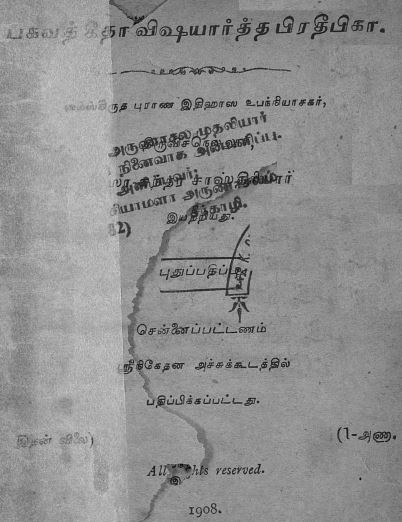 பகவத் கீதா விஷயார்த்த பிரதீபிகா.
புராண இதிஹாஸ உபந்நியாசகர்,
அருணாசல முதலியார்
நினைவாக அன்பளிப்பு.
அளிப்பவர்:
சாஸ்திரியார்
சியாமளா
சீகாழி.
இயற்றியது.
புதுப்பதிப்பு
சென்னைப்பட்டணம்
ஸ்ரீநிகேதன அச்சுக்கூடத்தில்
பதிப்பிக்கப்பட்டது.
இதன் விலை) (1-அணா.
All rights reserved.
1908.